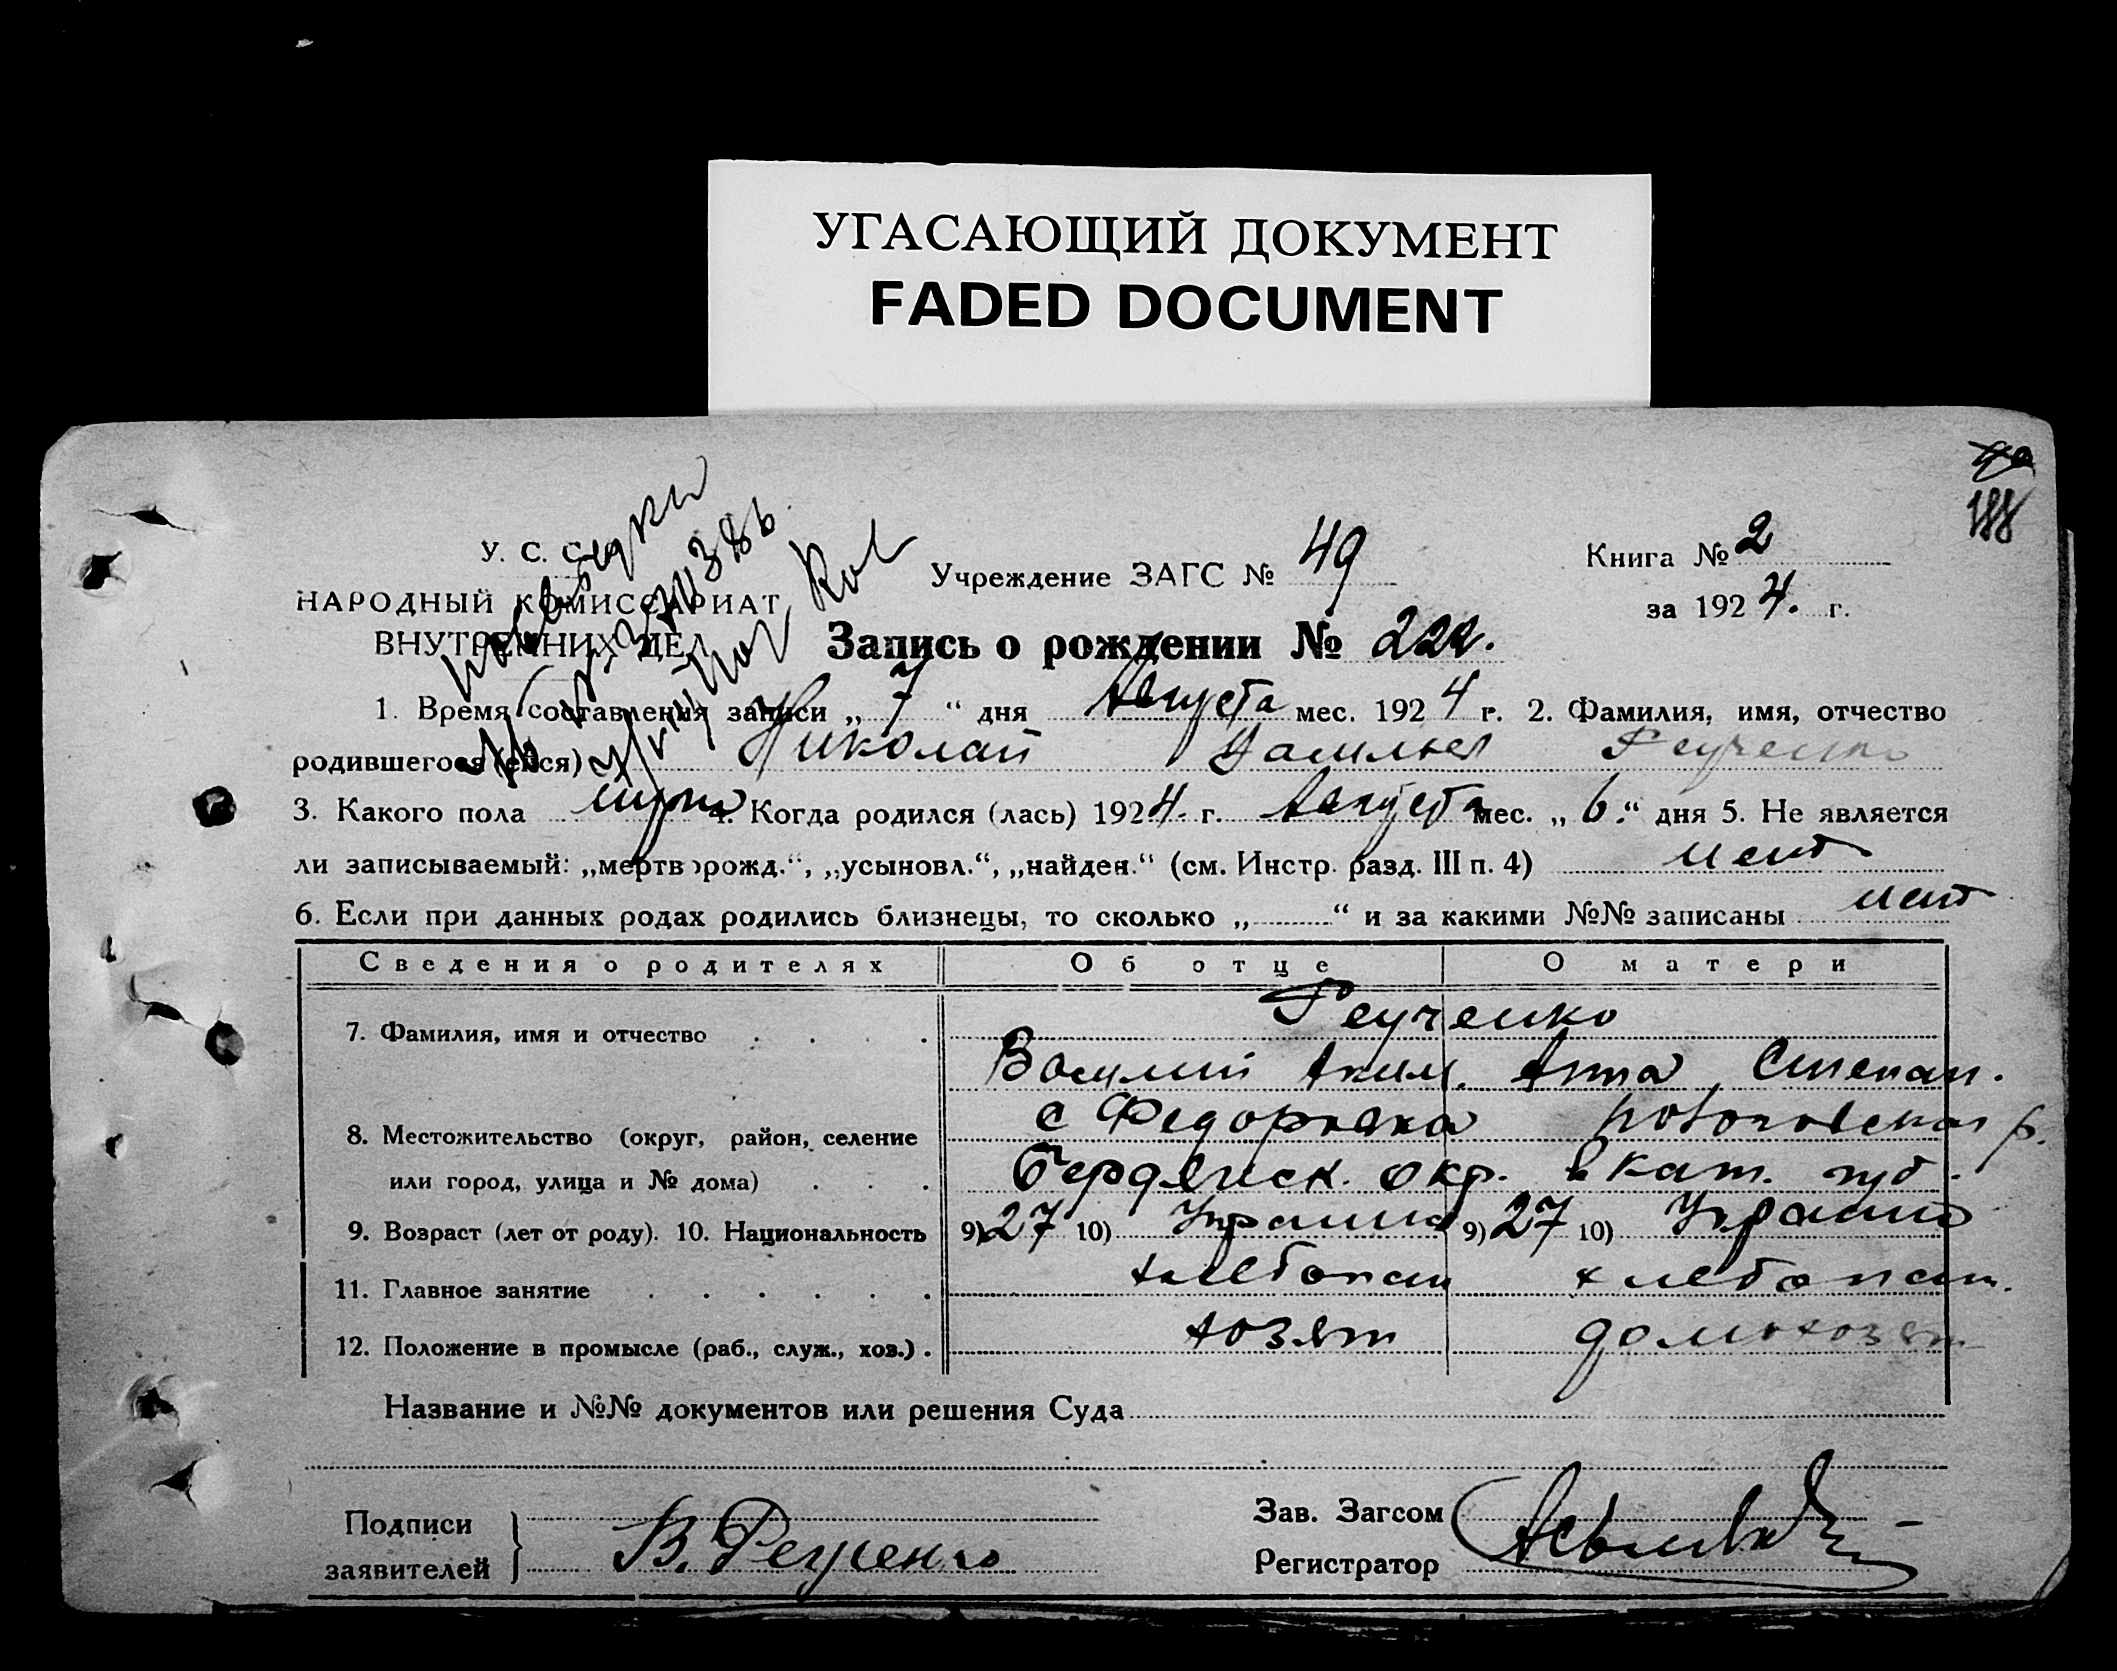 УГАСАЮЩИЙ ДОКУМЕНТ
FADED DOCUMENT
188
У. С. С.
НАРОДНЫЙ КОМИССАРИАТ
ВНУТРЕННИХ ДЕЛ
Учреждение ЗАГС № 49
Книга № 2
за 1924. г.
Запись о рождении № 222.
1. Время составления записи „ 7 “ дня Августа мес. 1924 г. 2. Фамилия, имя, отчество
родившегося (ейся) Николай Васильев Реученко
3. Какого пола мужск 4. Когда родился (лась) 1924. г. Августа мес. „ 6.“ дня 5. Не является
ли записываемый: „мертворожд.“, „усыновл.“, „найден.“ (см. Инстр. разд. III п. 4) нет
6. Если при данных родах родились близнецы, то сколько „ “ и за какими №№ записаны нет
Сведения о родителях Об отце О матери
7. Фамилия, имя и отчество Реученко
Василий Аким. Анна Степан.
8. Местожительство (округ, район, селение с Федоровка р.
или город, улица и № дома) Бердянск. окр. Екат. губ.
9. Возраст (лет от роду). 10. Национальность 9) 27 10) 9) 27 10)
11. Главное занятие хлебопаш хлебопаш.
12. Положение в промысле (раб., служ., хоз.). хозяин домохозяйн
Название и №№ документов или решения Суда
Подписи
заявителей В. Реученко
Зав. Загсом
Регистратор